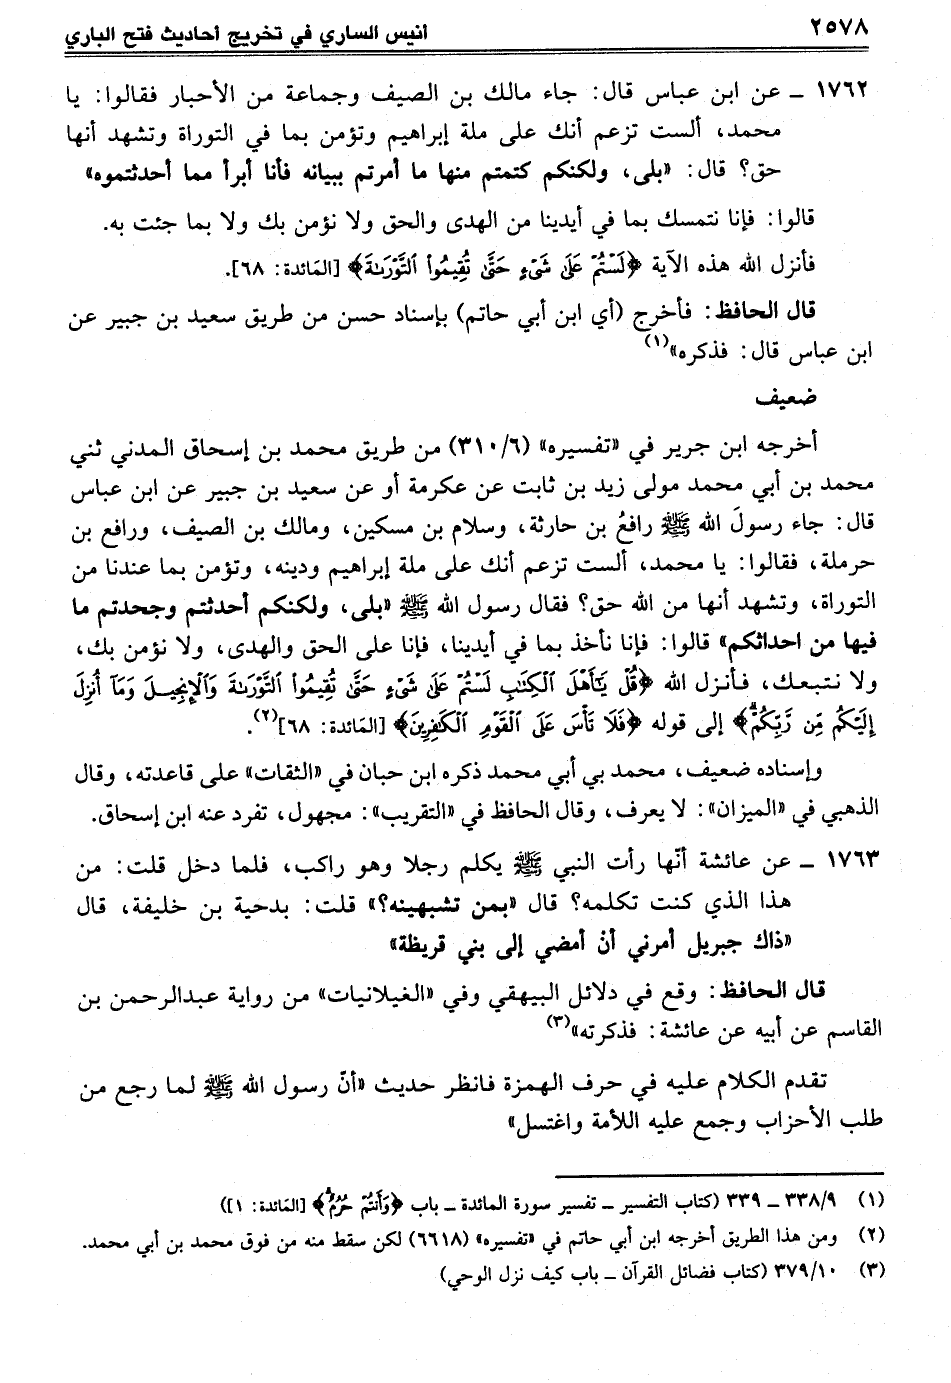 ٢٥٧٨
أنيس الساري في تخريج أحاديث فتح الباري
١٧٦٢ ـ عن ابن عباس قال: جاء مالك بن الصيف وجماعة من الأحبار فقالوا: يا
محمد، ألست تزعم أنك على ملة إبراهيم وتؤمن بما في التوراة وتشهد أنها
حق؟ قال: «بلى، ولكنكم كتمتم منها ما أمرتم ببيانه فأنا أبرأ مما أحدثتموه»
قالوا: فإنا نتمسك بما في أيدينا من الهدى والحق ولا نؤمن بك ولا بما جئت به.
فأنزل الله هذه الآية ﴿لَسْتُمْ عَلَىٰ شَىْءٍ حَتَّىٰ تُقِيمُوا۟ ٱلتَّوْرَىٰةَ﴾ [المَائدة: ٦٨].
قال الحافظ: فأخرج (أي ابن أبي حاتم) بإسناد حسن من طريق سعيد بن جبير عن
ابن عباس قال: فذكره»(١)
ضعيف
أخرجه ابن جرير في «تفسيره» (٣١٠/٦) من طريق محمد بن إسحاق المدني ثني
محمد بن أبي محمد مولى زيد بن ثابت عن عكرمة أو عن سعيد بن جبير عن ابن عباس
قال: جاء رسولَ الله ﷺ رافعُ بن حارثة، وسلام بن مسكين، ومالك بن الصيف، ورافع بن
حرملة، فقالوا: يا محمد، ألست تزعم أنك على ملة إبراهيم ودينه، وتؤمن بما عندنا من
التوراة، وتشهد أنها من الله حق؟ فقال رسول الله ﷺ «بلى، ولكنكم أحدثتم وجحدتم ما
فيها من احداثكم» قالوا: فإنا نأخذ بما في أيدينا، فإنا على الحق والهدى، ولا نؤمن بك،
ولا نتبعك، فأنزل الله ﴿قُلْ يَـٰٓأَهْلَ ٱلْكِتَـٰبِ لَسْتُمْ عَلَىٰ شَىْءٍ حَتَّىٰ تُقِيمُوا۟ ٱلتَّوْرَىٰةَ وَٱلْإِنجِيلَ وَمَآ أُنزِلَ
إِلَيْكُم مِّن رَّبِّكُمْ ۗ﴾ إلى قوله ﴿فَلَا تَأْسَ عَلَى ٱلْقَوْمِ ٱلْكَـٰفِرِينَ﴾ [المَائدة: ٦٨](٢).
وإسناده ضعيف، محمد بي أبي محمد ذكره ابن حبان في «الثقات» على قاعدته، وقال
الذهبي في «الميزان»: لا يعرف، وقال الحافظ في «التقريب»: مجهول، تفرد عنه ابن إسحاق.
١٧٦٣ ـ عن عائشة أنّها رأت النبي ﷺ يكلم رجلا وهو راكب، فلما دخل قلت: من
هذا الذي كنت تكلمه؟ قال «بمن تشبهينه؟» قلت: بدحية بن خليفة، قال
«ذاك جبريل أمرني أنْ أمضي إلى بني قريظة»
قال الحافظ: وقع في دلائل البيهقي وفي «الغيلانيات» من رواية عبدالرحمن بن
القاسم عن أبيه عن عائشة: فذكرته»(٣)
تقدم الكلام عليه في حرف الهمزة فانظر حديث «أنّ رسول الله ﷺ لما رجع من
طلب الأحزاب وجمع عليه اللأمة واغتسل»
(١) ٣٣٨/٩ ـ ٣٣٩ (كتاب التفسير ـ تفسير سورة المائدة ـ باب ﴿وَأَنتُمْ حُرُمٌ ۗ﴾ [المَائدة: ١])
(٢) ومن هذا الطريق أخرجه ابن أبي حاتم في «تفسيره» (٦٦١٨) لكن سقط منه من فوق محمد بن أبي محمد.
(٣) ٣٧٩/١٠ (كتاب فضائل القرآن ـ باب كيف نزل الوحي)